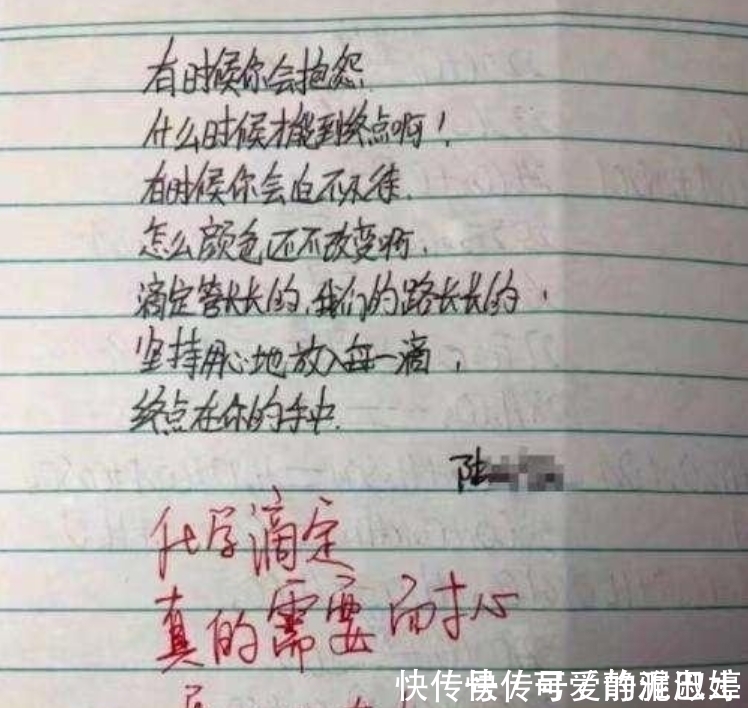 有时候你会抱怨.
什么时候才能到终点啊！
有时候你会迫不及待.
怎么颜色还不改变啊.
滴定管长长的,我们的路长长的,
坚持用心地放入每一滴,
终点在你的手中.
陆
化学滴定
真的需要耐心
快传号